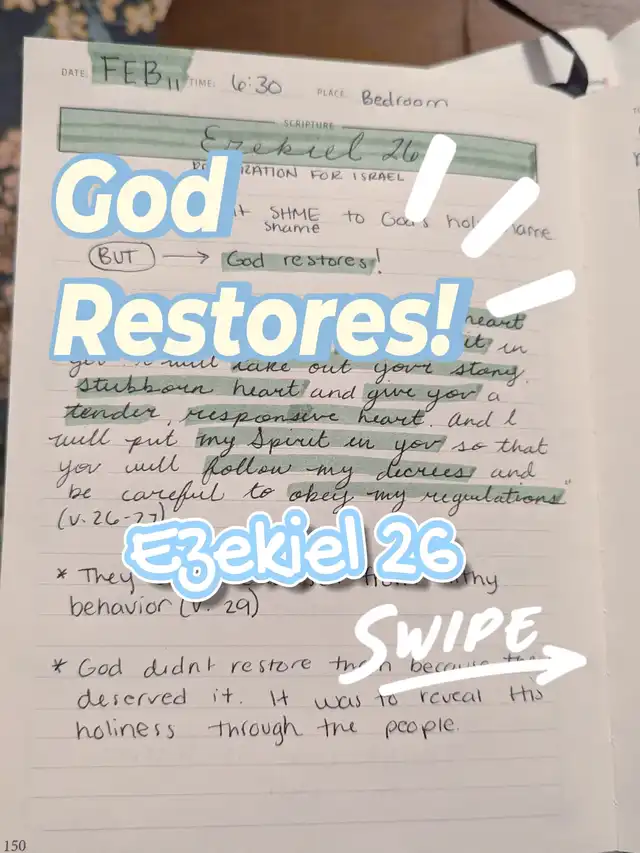 DATE: FEB 11 TIME: 6:30 PLACE: Bedroom
SCRIPTURE
Ezekiel 26
FOR ISRAEL
God
SHME to God's holy name
shame
BUT → God restores!
Restores!
heart
it in
you. I will take out your stony,
stubborn heart and give you a
tender, responsive heart. And I
will put my Spirit in you so that
you will follow my decrees and
be careful to obey my regulations"
(v. 26-27)
Ezekiel 26
* They
behavior (v. 29)
SWIPE
* God didnt restore them because they
deserved it. It was to reveal His
holiness through the people.
150